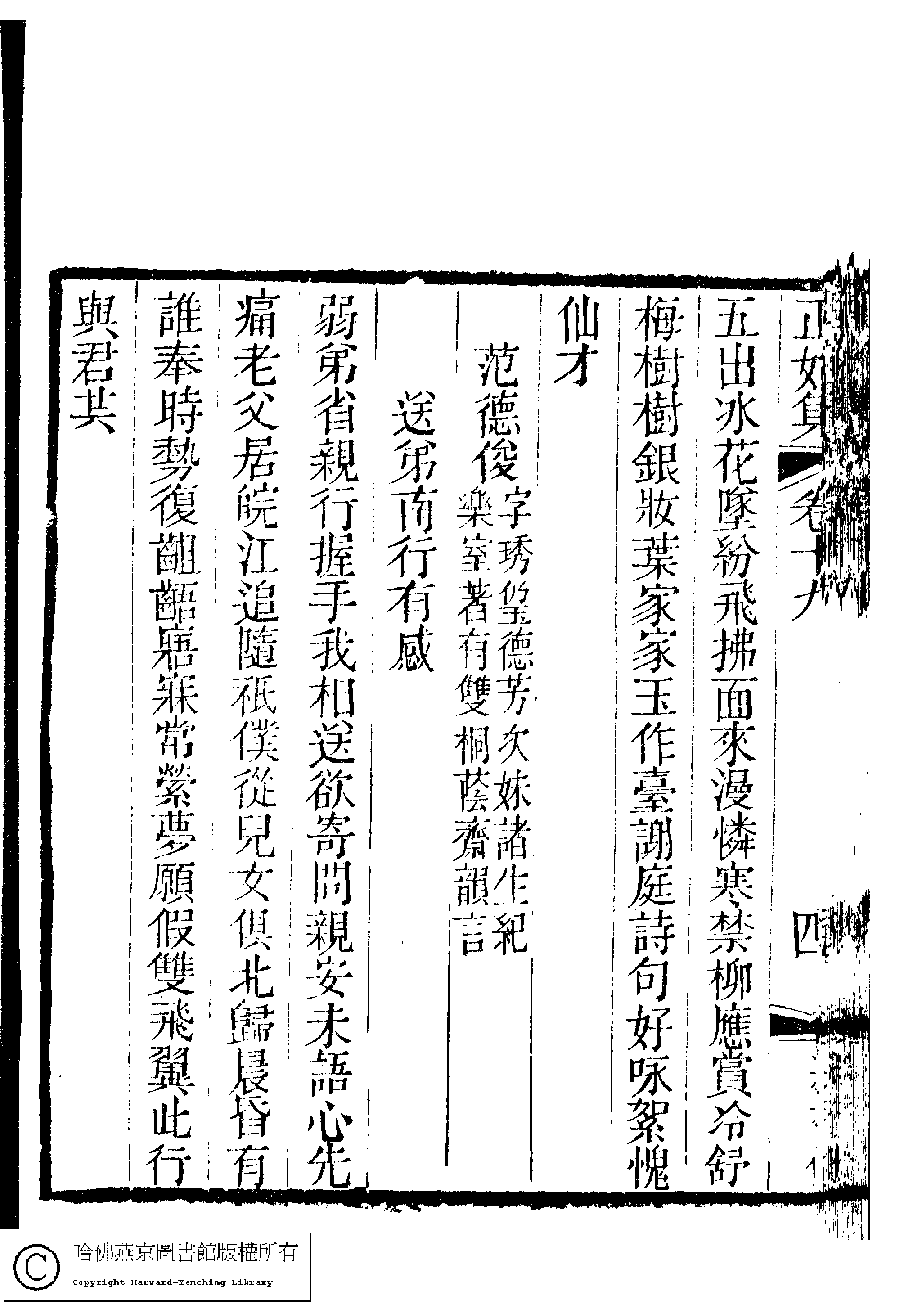 正始集 卷十九 四
五出冰花墜紛飛拂面來漫憐寒禁柳應賞冷舒
梅樹樹銀妝葉家家玉作臺謝庭詩句好咏絮愧
仙才
范德俊字琇瑩德芳次妹諸生紀
樂室著有雙桐蔭齋韻言
送弟南行有感
弱弟省親行握手我相送欲寄問親安未語心先
痛老父居皖江追隨秪僕從兒女俱北歸晨昏有
誰奉時勢復齟齬寤寐常縈夢願假雙飛翼此行
與君共
哈佛燕京圖書館版權所有
Copyright Harvard-Yenching Library